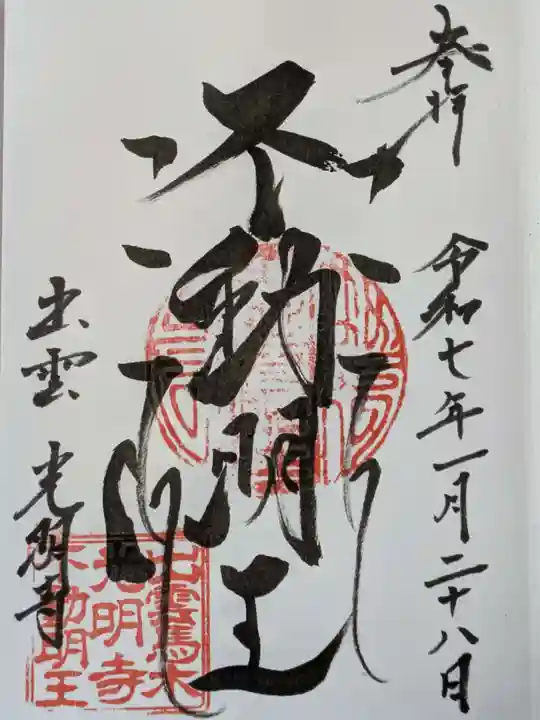 奉拝
令和七年一月二十八日
不動明王
出雲 光明寺
出雲馬木
光明寺
不動明王